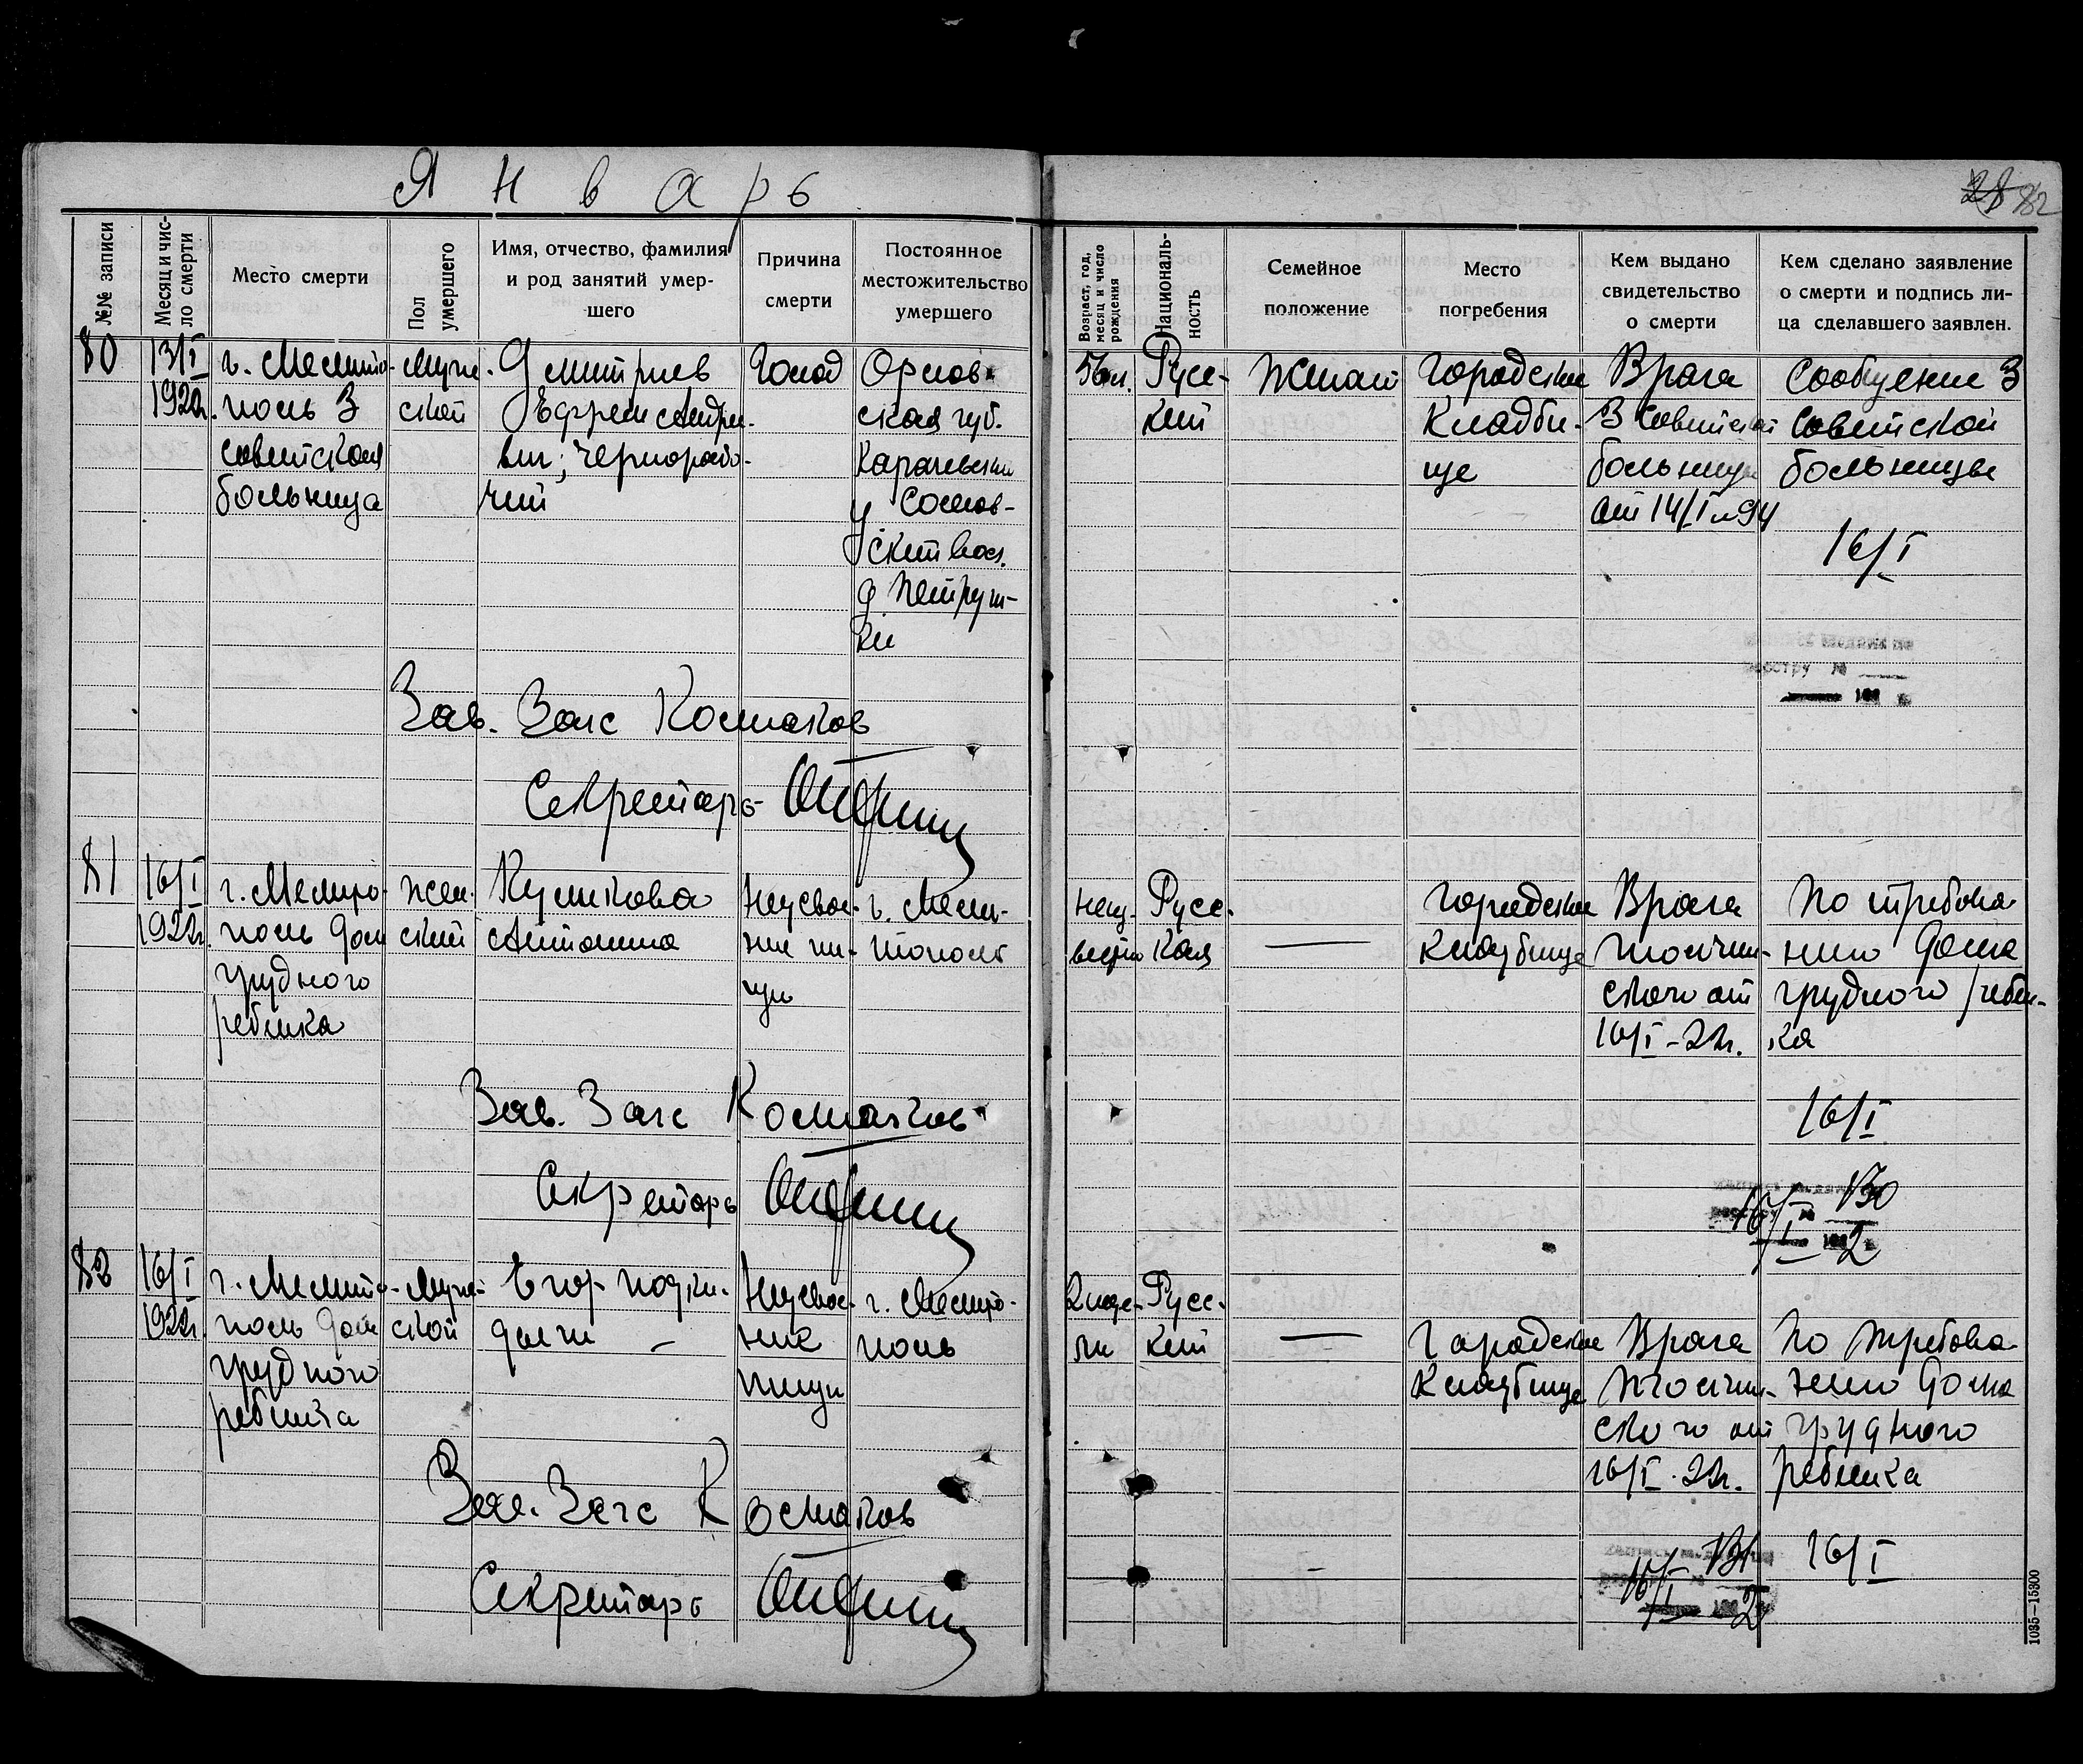 Январь
28 82
№№ записи
Месяц и чис-
ло смерти
Место смерти
Пол
умершего
Имя, отчество, фамилия
и род занятий умер-
шего
Причина
смерти
Постоянное
местожительство
умершего
Возраст, год,
месяц и число
рождения
Националь-
ность
Семейное
положение
Место
погребения
Кем выдано
свидетельство
о смерти
Кем сделано заявление
о смерти и подпись ли-
ца сделавшего заявлен.
80
13/I
1922г.
г. Мелито-
поль 3
советская
больница
Муж-
ской
Дмитриев
Ефрем Андре-
вич; чернорабо-
чий
Голод
Орлов-
ская губ.
Карачевский
у Сомов-
ский вол.
д. Петруш-
ки
56 л.
Русс-
кий
Женат
Городское
Кладби-
ще
Врача
3 Советской
больницы
от 14/I № 94
Сообщение 3
Советской
больницы
16/I
Зав. Загс Косматов
Секретарь
81
16/I
1922г.
г. Мелито-
поль Дом
грудного
ребенка
Жен-
ский
Куликова
Антонина
Неусвое-
ние пи-
щи
г. Мели-
тополь
Неиз-
вестно
Русс-
кая
—
Городское
Кладбище
Врача
ского от
16/I-22г.
По требова-
нию Дома
грудного ребен-
ка
16/I
Зав. Загс Косматов
Секретарь
16/I 130
2
82
16/I
1922г.
г. Мелито-
поль Дом
грудного
ребенка
Муж-
ской
Егор подки-
дыш —
Неусвое-
ние
пищи
г. Мелито-
поль
2 неде-
ли
Русс-
кий
—
Городское
Кладбище
Врача
ского от
16/I-22г.
По требова-
нию Дома
грудного
ребенка
16/I
Зав. Загс Косматов
Секретарь
16/I 131
2
1035—15300